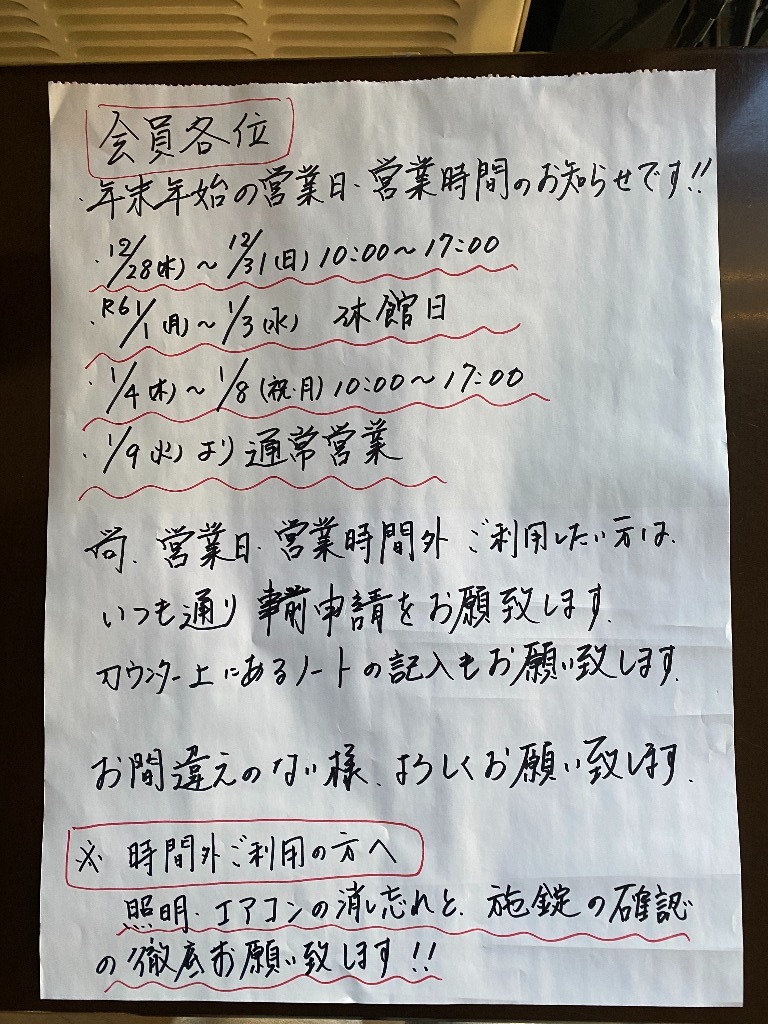 会員各位
・年末年始の営業日・営業時間のお知らせです!!
・12/28(木)～12/31(日)10:00～17:00
・R6 1/1(月)～1/3(水) 休館日
・1/4(木)～1/8(祝・月)10:00～17:00
・1/9(火)より通常営業
尚、営業日・営業時間外 ご利用したい方は、
いつも通り 事前申請をお願致します.
カウンター上にあるノートの記入もお願い致します.
お間違えのない様、よろしくお願い致します.
※ 時間外ご利用の方へ
照明・エアコンの消し忘れと、施錠の確認
の徹底お願い致します!!